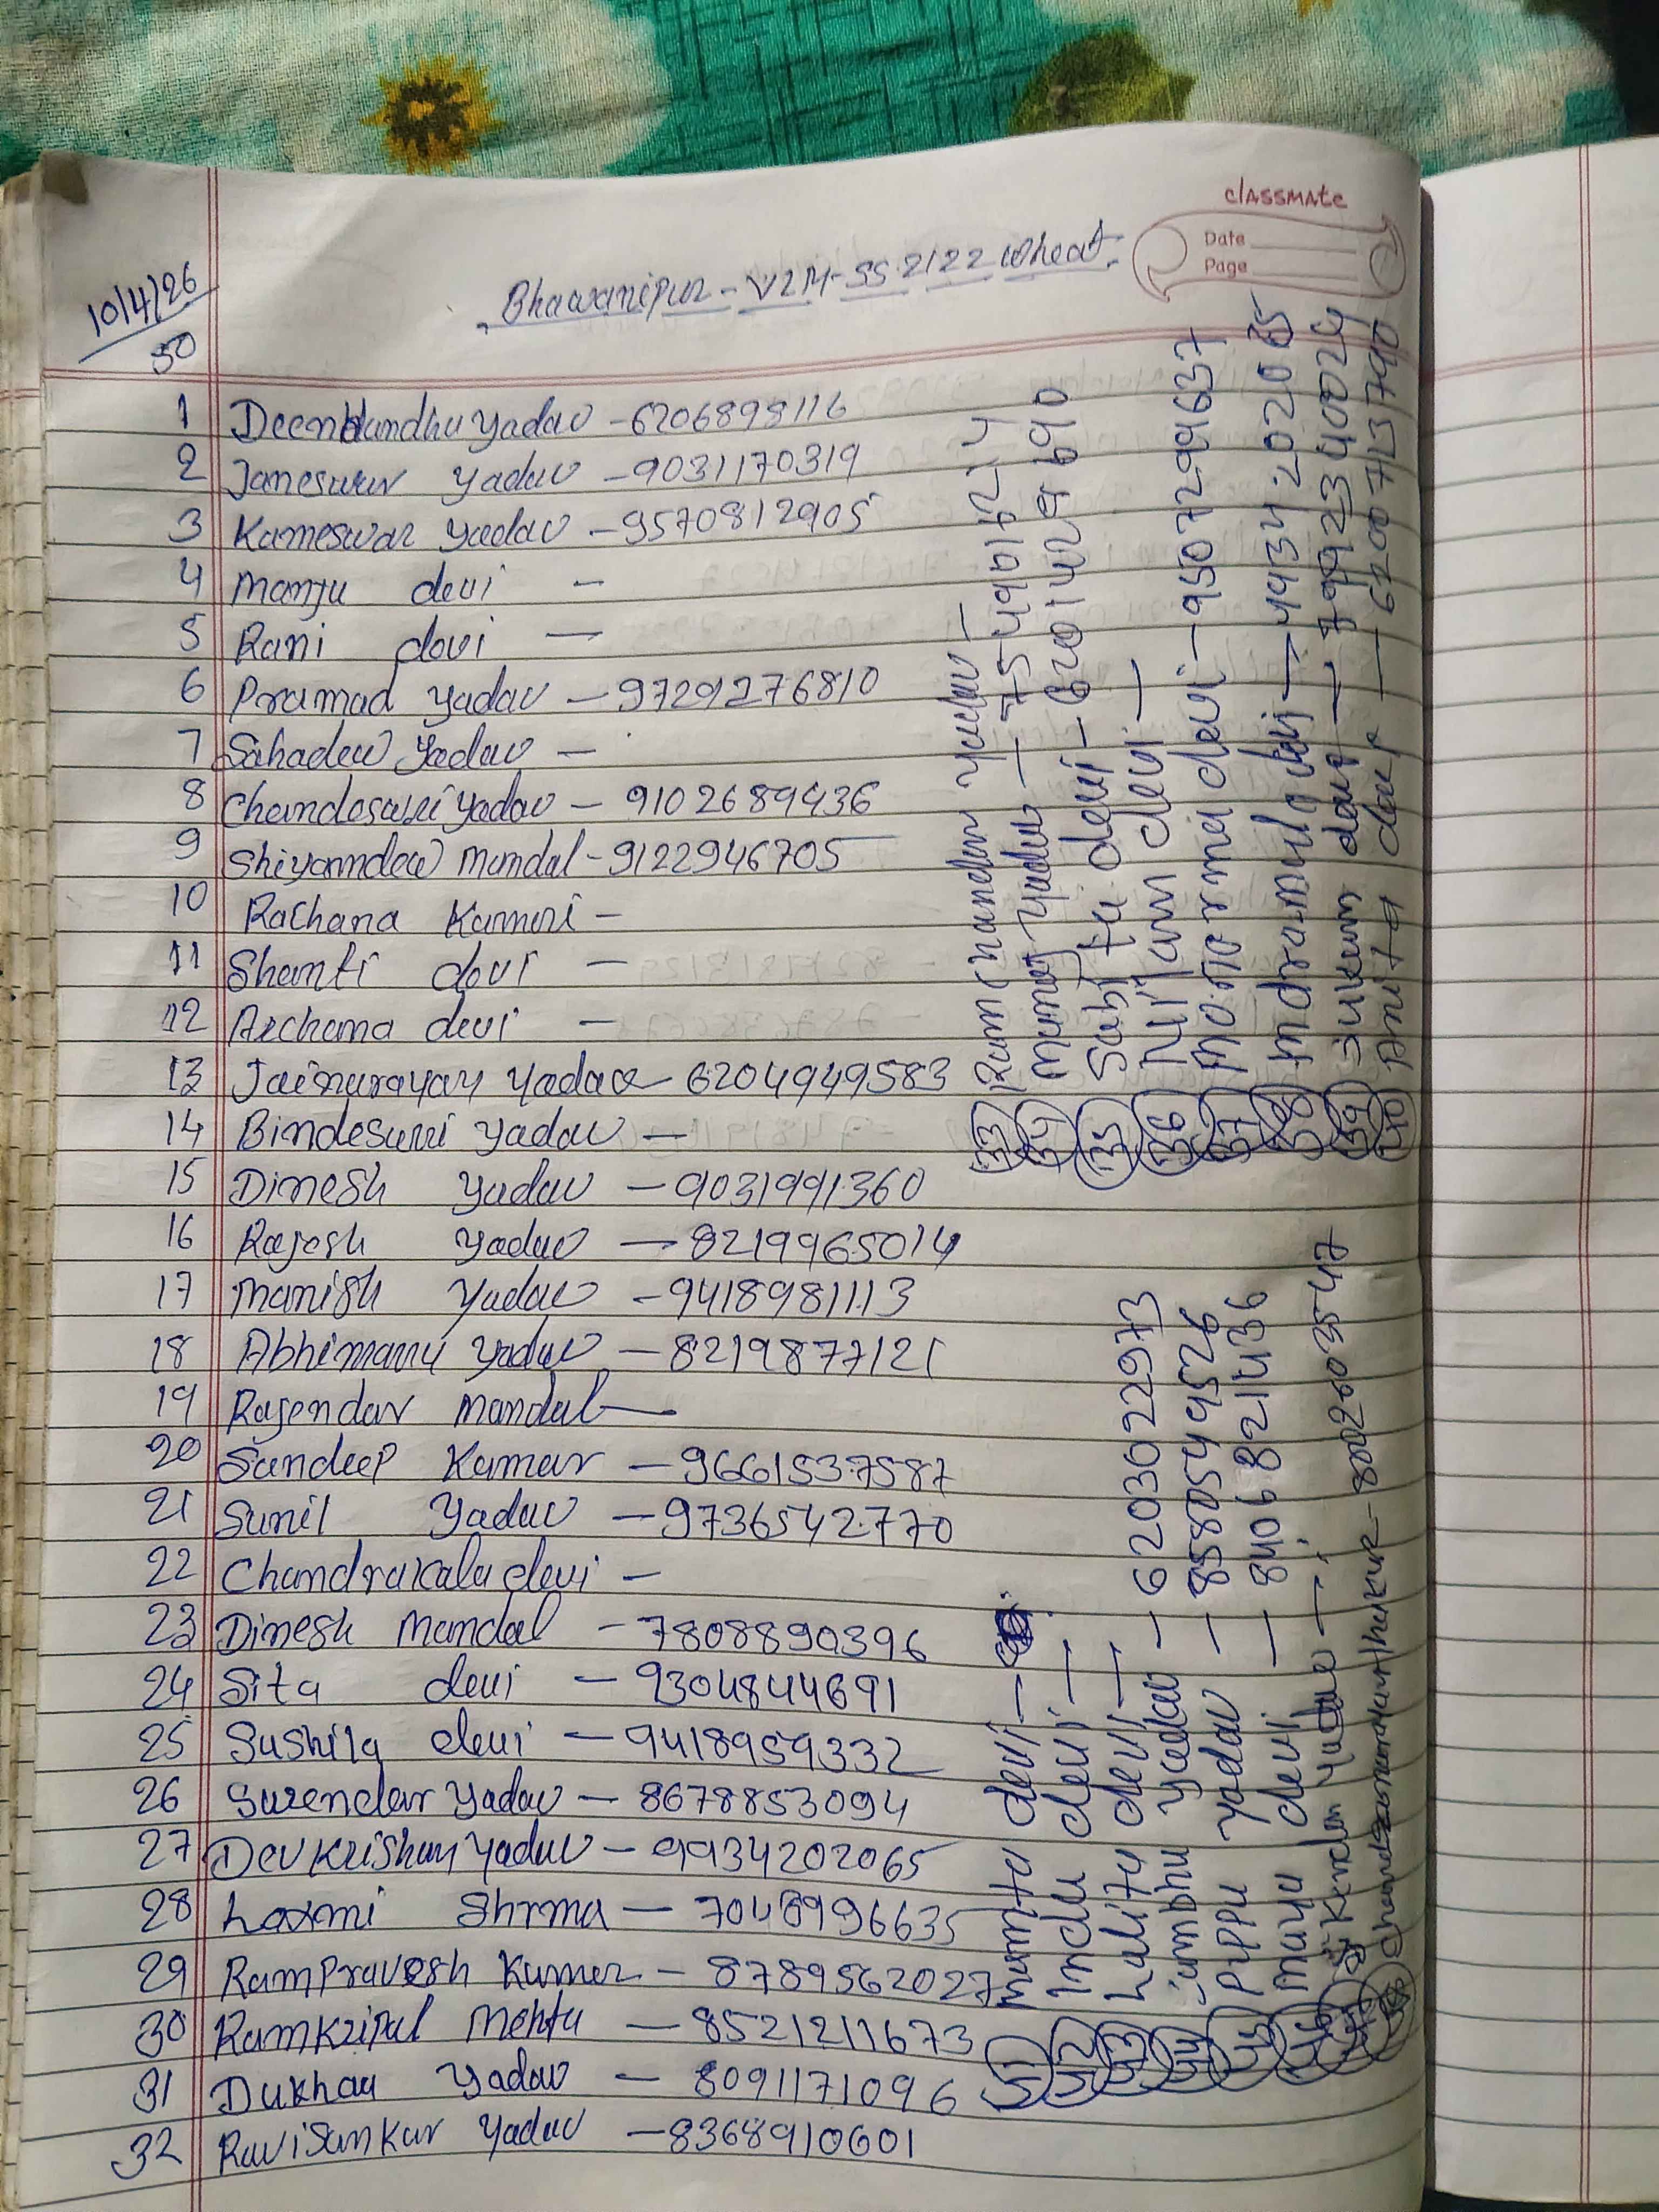 classmate
Date
Page
10/4/26
50
Bhawanipur - V2M-SS 2122 Wheat.
1 Deenbandhu Yadav - 6206898116
2 Janeswar Yadav - 9031170319
3 Kameswar Yadav - 9570812905
4 Manju devi -
5 Rani devi -
6 Pramad Yadav - 9729276810
7 Sahadew Yadav -
8 Chandeswri Yadav - 9102689436
9 Shiyanndew Mandal - 9122946705
10 Rachana Kumari -
11 Shanti devi -
12 Archana devi -
13 Jainarayan Yadav - 6204949583
14 Bindeswri Yadav -
15 Dinesh Yadav - 9031991360
16 Rajesh Yadav - 8219965014
17 Manish Yadav - 9418981113
18 Abhimanu Yadav - 8219877121
19 Rajendar Mandal -
20 Sandeep Kumar - 9661537587
21 Sunil Yadav - 9736542770
22 Chandrakala devi -
23 Dinesh Mandal - 7808890396
24 Sita devi - 9304844691
25 Sushila devi - 9418959332
26 Surendar Yadav - 8678853094
27 Devkrishan Yadav - 9934202065
28 Laxmi Shrma - 7048996635
29 Rampravesh Kumar - 8789562027
30 Ramkripal Mehta - 8521211673
31 Dukhan Yadav - 8091171096
32 Ravisankar Yadav - 8368910601
33 Ramchandan Yadav -
34 Yadav -
35 Sabita devi - 6201429690
36 Nilam devi -
37 Mo.norma devi - 9507299637
38 Indramula devi -
39 - 7992340024
40 Anita - 6200713790
Mamta devi -
Indu devi -
Lalita devi -
Sambhu Yadav - 6203022973
Puppu Yadav - 8580549526
Maya devi - 8406821436
Yadav -
- 8002603547